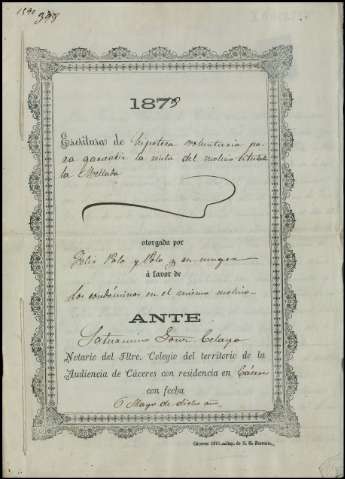 1878
Escritura de hipoteca voluntaria pa
ra garantir la renta del molino titulado
la
otorgada por
Felix Polo y Polo y su muger
á favor de
Los condóminos en el mismo molino
ANTE
Saturnino
Notario del Iltre. Colegio del territorio de la
Audiencia de Cáceres con residencia en Cáceres
con fecha
6 Mayo de dicho año